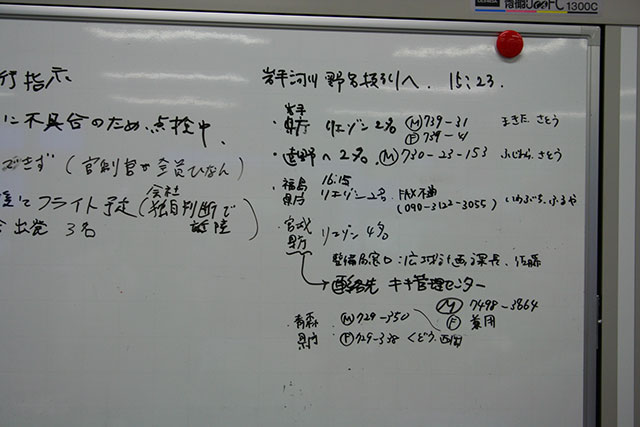 1300C
行指示
に不具合のため、点検中、
できず(官制官が全員ひなん)
後にフライト予定(会社独自判断で離陸)
出発 3名
岩手河川 野名技引へ. 15:23.
・岩手県庁 リエゾン2名 Ⓜ739-31 まきた さとう
Ⓕ739-41
・遠野へ2名, Ⓜ730-23-153 ふじわら、さとう
・福島県庁 16:15 リエゾン2名 FAX不通
(090-3122-3055) いわぶち、ふるや
・宮城県庁 リエゾン4名
整備局窓口:広域計画課長、佐藤
→連絡先 キキ管理センター
Ⓜ7498-3864
Ⓕ 兼用
・青森県庁 Ⓜ729-350
Ⓕ729-338 くどう、西関